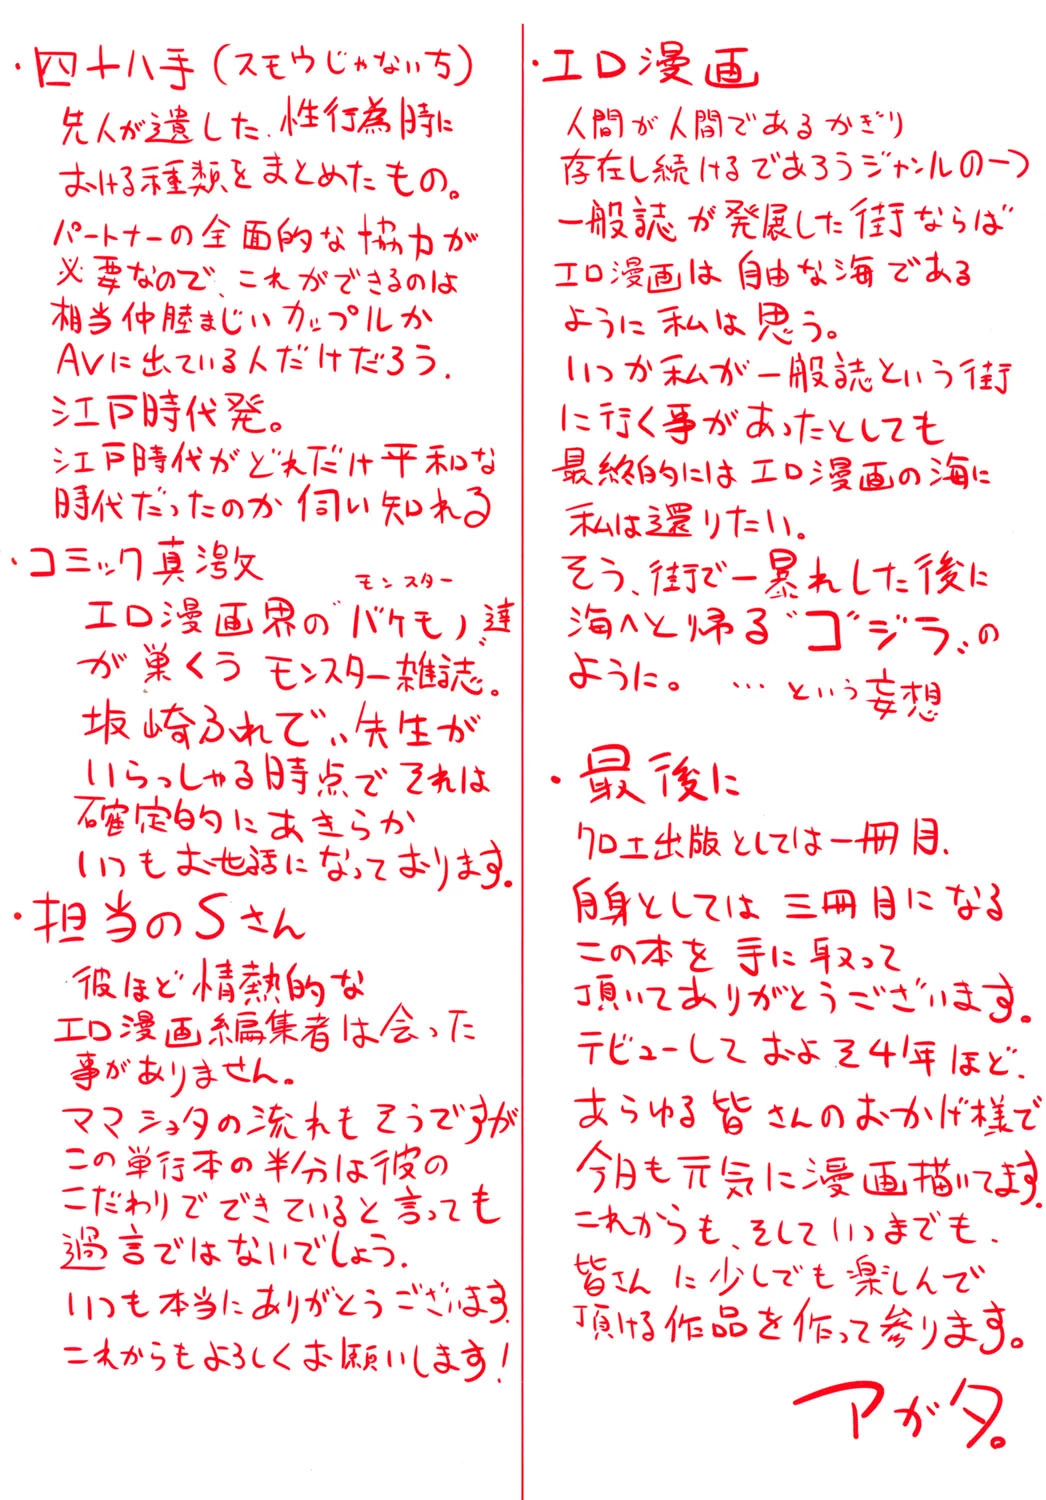 ・四十八手(スモウじゃない方)
先人が遺した、性行為時に
おける種類をまとめたもの。
パートナーの全面的な協力が
必要なので、これができるのは
相当仲睦まじいカップルか
AVに出ている人だけだろう.
江戸時代発。
江戸時代がどれだけ平和な
時代だったのか伺い知れる
・コミック真激
エロ漫画界の"バケモノ達"
モンスター
が巣くうモンスター雑誌。
坂崎ふれでぃ先生が
いらっしゃる時点でそれは
確定的にあきらか
いつもお世話になっております。
・担当のSさん
彼ほど情熱的な
エロ漫画編集者は会った
事がありません。
ママショタの流れもそうですが
この単行本の半分は彼の
こだわりでできていると言っても
過言ではないでしょう.
いつも本当にありがとうございます.
これからもよろしくお願いします!
・エロ漫画
人間が人間であるかぎり
存在し続けるであろうジャンルの一つ
一般誌が発展した街ならば
エロ漫画は自由な海である
ように私は思う。
いつか私が一般誌という街
に行く事があったとしても
最終的にはエロ漫画の海に
私は還りたい。
そう、街で一暴れした後に
海へと帰る"ゴジラ"の
ように。 …という妄想
・最後に
クロエ出版としては一冊目、
自身としては三冊目になる
この本を手に取って
頂いてありがとうございます。
デビューしておよそ4年ほど、
あらゆる皆さんのおかげ様で
今月も元気に漫画描いてます.
これからも、そしていつまでも、
皆さんに少しでも楽しんで
頂ける作品を作って参ります。
アガタ。